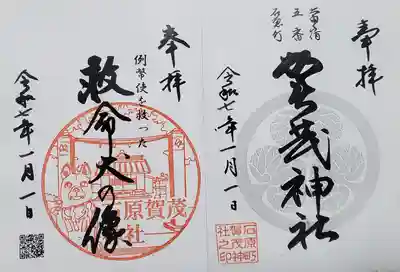 奉拝
五番
石原町
賀茂神社
令和七年一月一日
石原町
賀茂神
社之印
奉拝
例幣使を救った
救命犬の像
令和七年一月一日